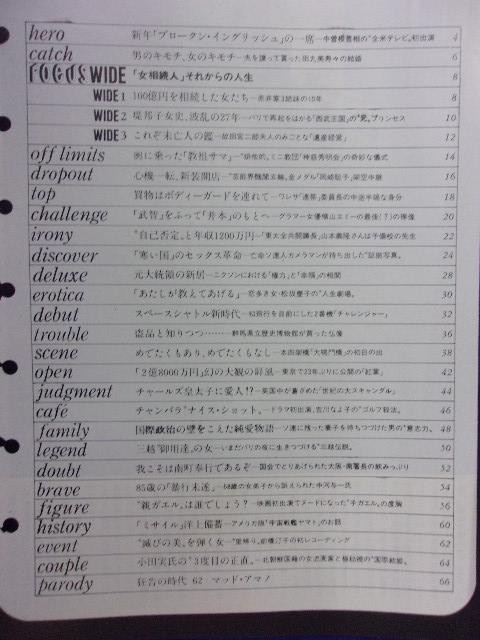 hero 新年「ブロークン・イングリッシュ」の一席―中曽根首相の"全米テレビ"初出演 4
catch 男のキモチ、女のキモチ―夫を譲って貰った田丸美寿々の結婚 6
FOCUS WIDE 「女相続人」それからの人生 8
WIDE 1 100億円を相続した女たち―赤井家3姉妹の15年 8
WIDE 2 堤邦子女史、波乱の27年―パリで再起をはかる「西武王国」の"元"プリンセス 10
WIDE 3 これぞ未亡人の鑑―故田宮二郎夫人のみごとな「遺産経営」 12
off limits 図に乗った「教祖サマ」 ミニ教団「神慈秀明会」の奇妙な儀式 14
dropout 心機一転、新装開店 16
top 買物はボディーガードを連れて―ワレサ「連帯」委員長の中途半端な身分 18
challenge 「武智」をふって「井本」のもとへ―グラマー女優横山エミーの最後(?)の裸像 20
irony "自己否定"と年収1200万円―「東大全共闘議長」山本義隆さんは予備校の先生 22
discover 「寒い国」のセックス革命―亡命ソ連人カメラマンが持ち出した"証拠写真" 24
deluxe 元大統領の新居―ニクソンにおける「権力」と「幸福」の相関 28
erotica 「あたしが教えてあげる」―恋多き女・松坂慶子の"人生劇場" 30
debut スペースシャトル新時代―初飛行を目前にした2番機「チャレンジャー」 32
trouble 盗品と知りつつ………群馬県立歴史博物館が買った仏像 36
scene めでたくもあり、めでたくもなし―本四架橋「大鳴門橋」の初日の出 38
open 「2億8000万円」幻の大観の屛風―東京で23年ぶりに公開の「紅葉」 42
judgment チャールズ皇太子に愛人!?―英国中が蒼ざめた"世紀の大スキャンダル" 44
café チャンバラ"ナイス・ショット"―ドラマ初出演、吉川なよ子の"ゴルフ殺法" 46
family 国際政治の壁をこえた純愛物語―ソ連に残った妻子を待ちつづけた男の"意志力" 48
legend 三越"御用達"の女―いまだパリの夜に生きつづける"三越伝説" 50
doubt 我こそは南町奉行であるぞ―国会でとりあげられた大阪・南署長の飲みっぷり 52
brave 85歳の「暴行未遂」―68歳の女弟子から訴えられた中河与一氏 54
figure "親ガエル"は誰でしょう?―映画初出演でヌードになった"子ガエル"の度胸 56
history 「ミサイル」洋上備蓄―アメリカ版「宇宙戦艦ヤマト」のお話 60
event "滅びの美"を弾く女―里帰り、前橋汀子の初レコーディング 62
couple 小田実氏の"3度目の正直"―北朝鮮国籍の女流画家と極秘裡の"国際結婚" 64
parody 狂告の時代 62 マッド・アマノ 66